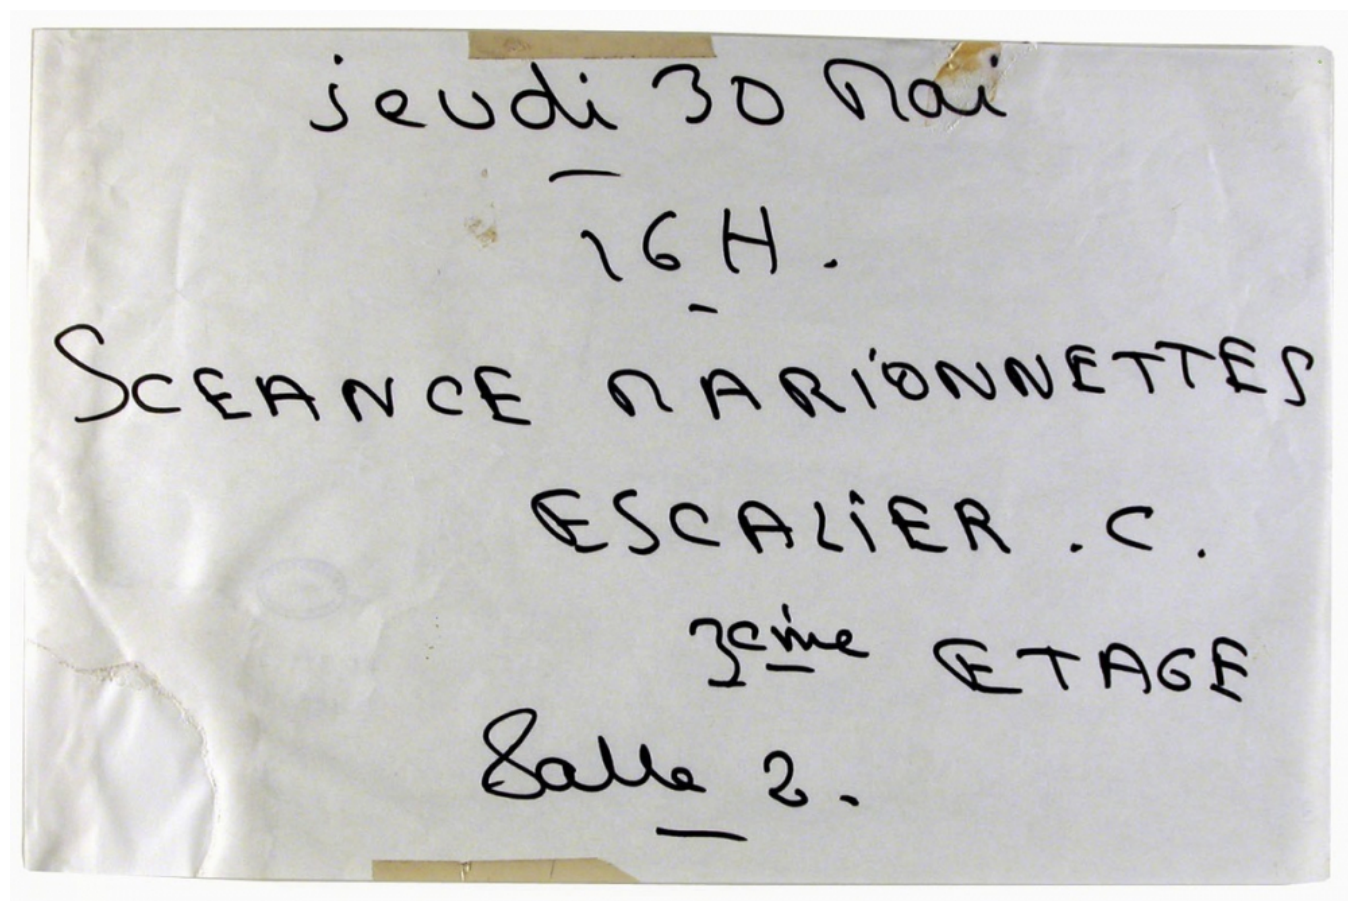 jeudi 30 Mai
16H.
SCEANCE MARIONNETTES
ESCALIER . C.
3eme ETAGE
Salle 2.